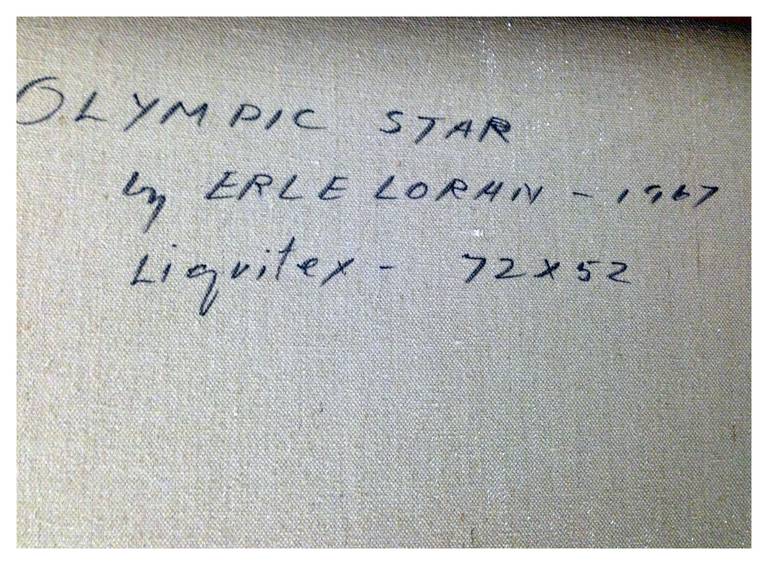 OLYMPIC STAR
by ERLE LORAN - 1967
Liquitex - 72x52